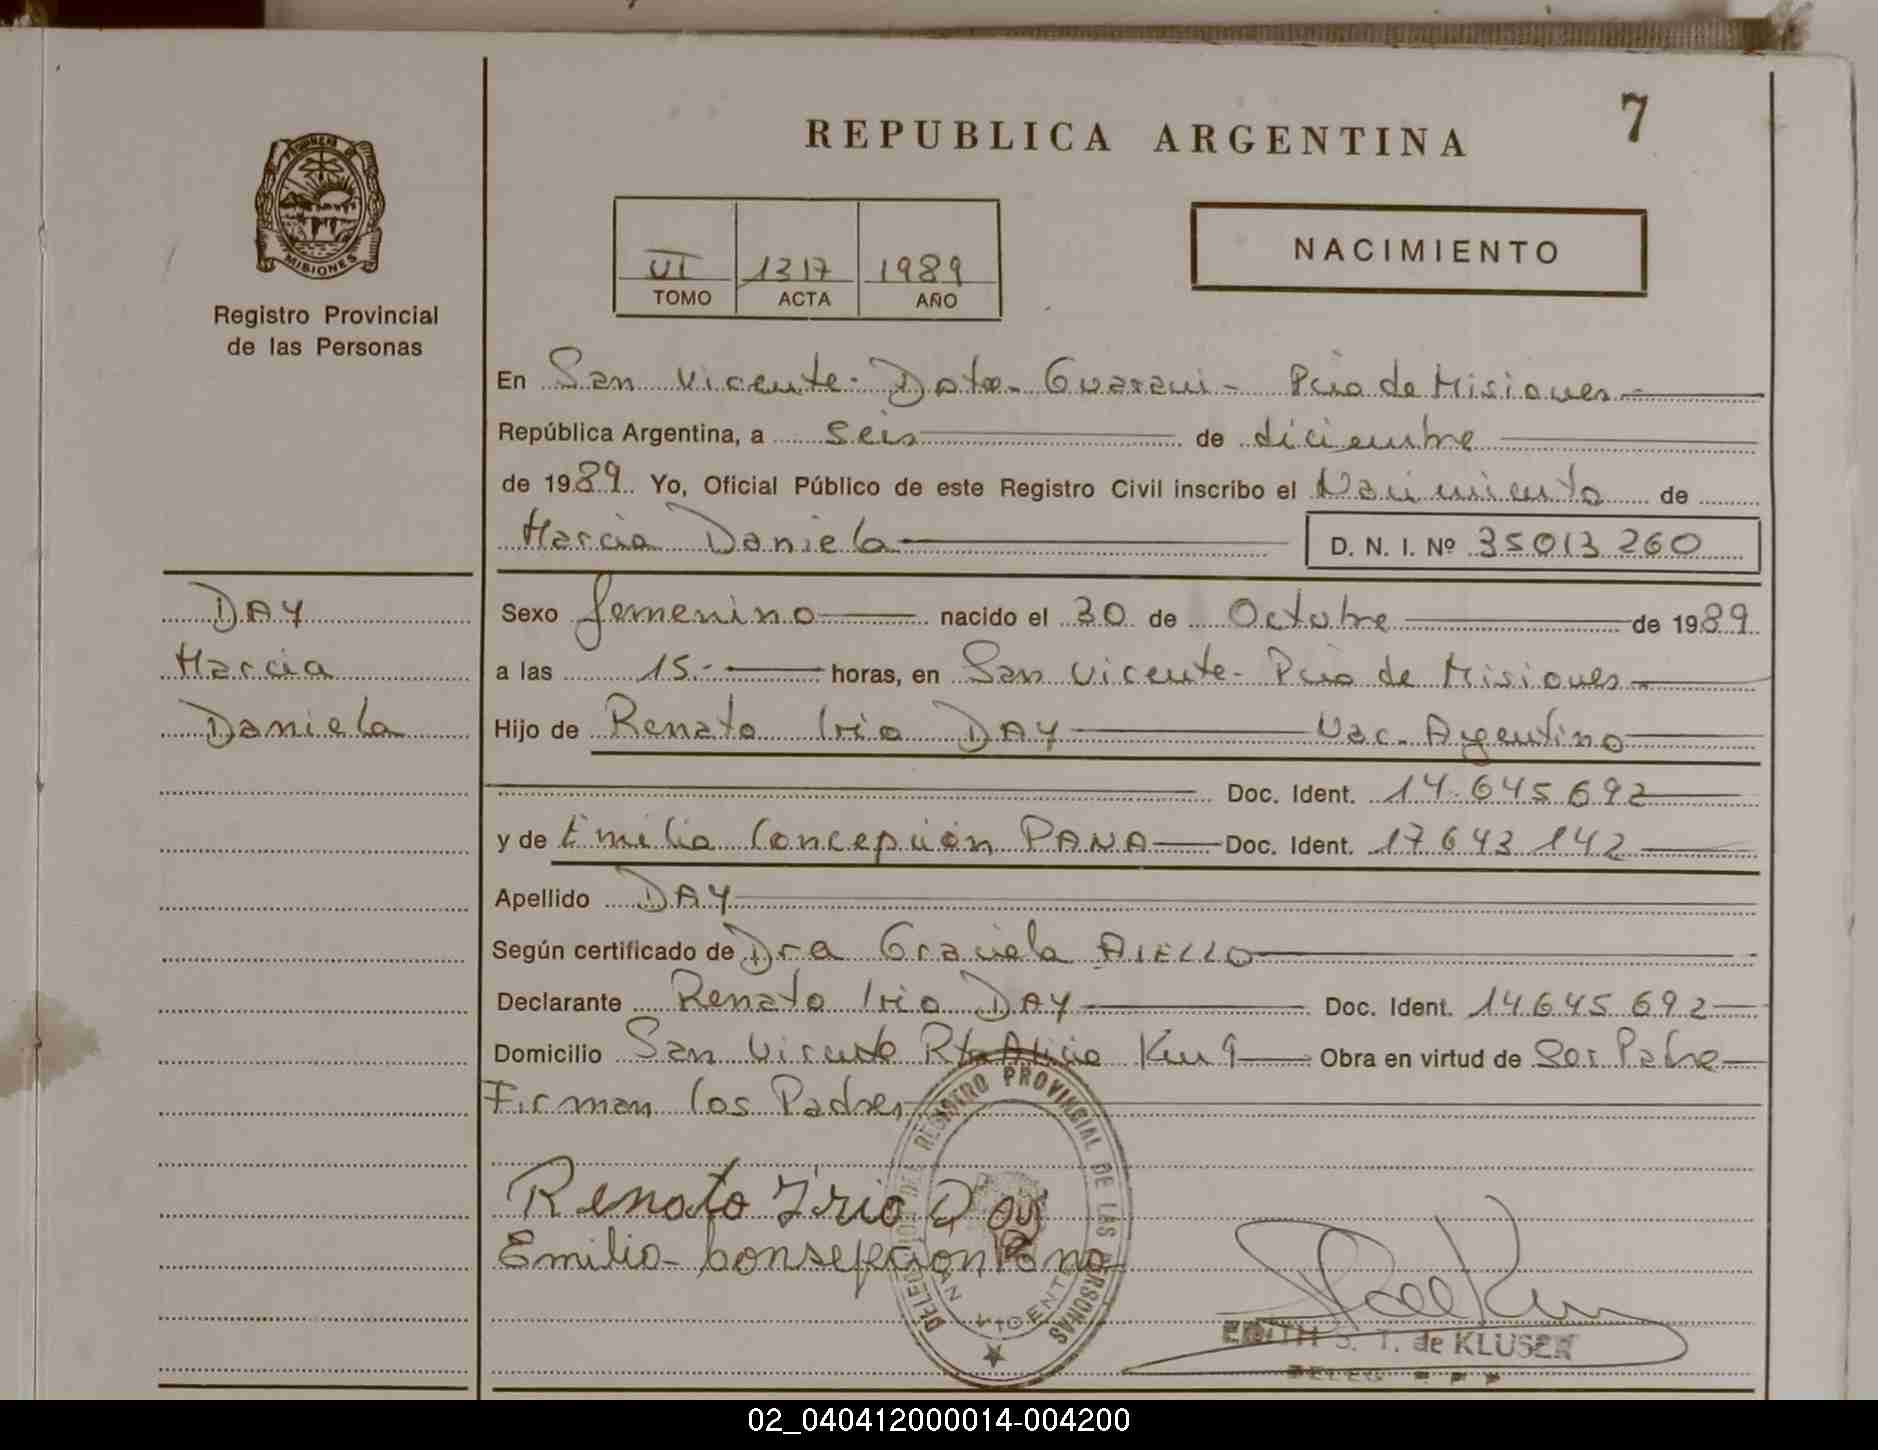 7
REPUBLICA ARGENTINA
PROVINCIA DE
MISIONES
Registro Provincial
de las Personas
VI 1317 1989
TOMO ACTA AÑO
NACIMIENTO
En San Vicente - Dpto - Guarani - Pcia de Misiones
República Argentina, a seis de diciembre
de 1989. Yo, Oficial Público de este Registro Civil inscribo el Nacimiento de
Marcia Daniela D. N. I. Nº 35013260
DAY
Marcia
Daniela
Sexo femenino nacido el 30 de Octubre de 1989
a las 15.- horas, en San Vicente - Pcia de Misiones
Hijo de Renato Irio DAY Nac. Argentino
Doc. Ident. 14.645692
y de Emilia Concepción PANA Doc. Ident. 17643142
Apellido DAY
Según certificado de Dra Graciela AIELLO
Declarante Renato Irio DAY Doc. Ident. 14645692
Domicilio San Vicente Pto Alicia Km 9 Obra en virtud de Ser Padre
Firman los Padres
Renato Irio Day
Emilia Consepcion Pana
DELEGACION DEL REGISTRO PROVINCIAL DE LAS PERSONAS
SAN VICENTE
EDITH S. T. de KLUSER
DELEG. R P P
02_040412000014-004200